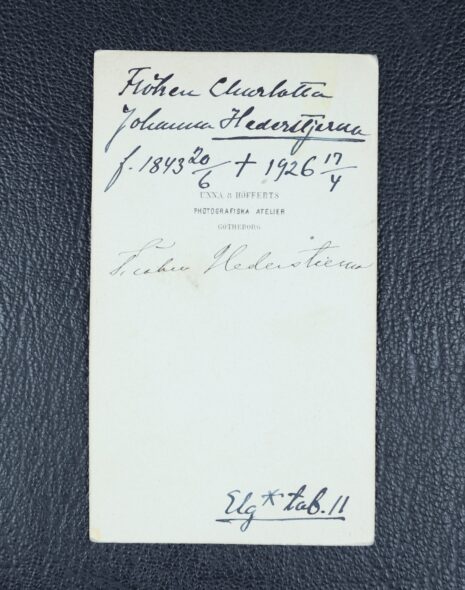 Fröken Charlotta
Johanna Hederstjerna
f. 1843 20/6 † 1926 17/4
UNNA & HÖFFERTS
PHOTOGRAFISKA ATELIER
GÖTHEBORG
Fröken Hederstierna
Elg* tab. 11